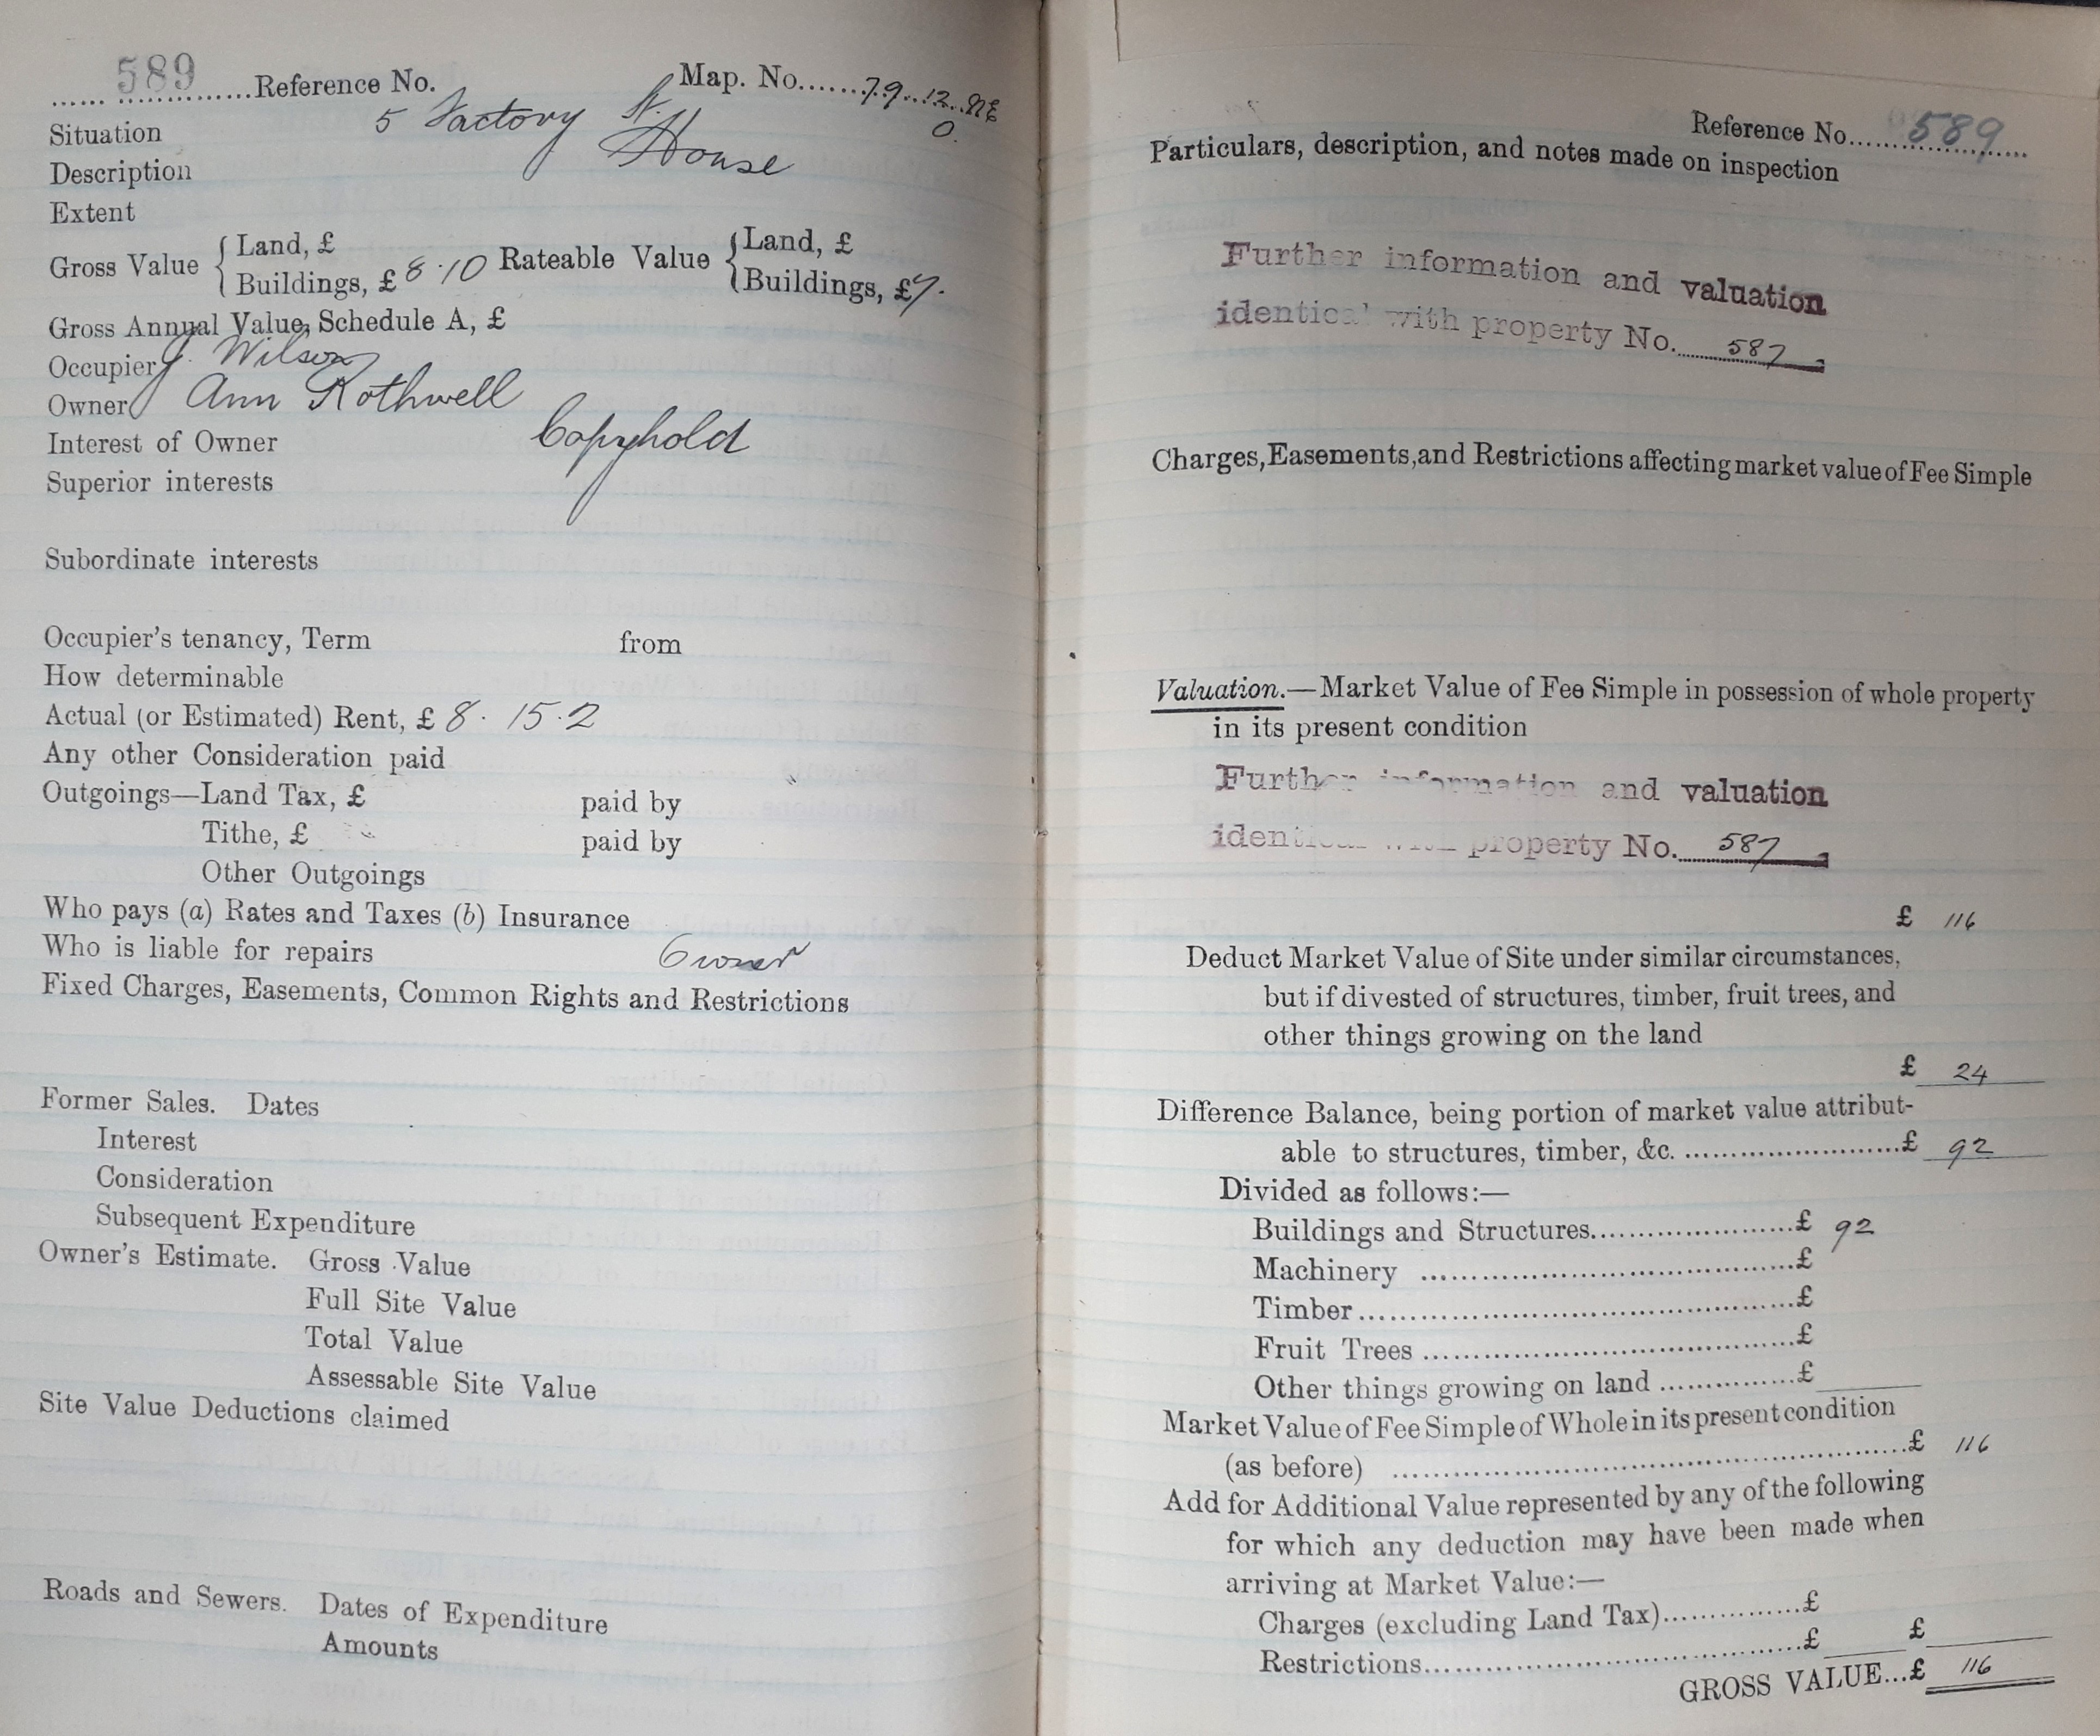 589 Reference No. Map. No. 79.12.NE
0.
Situation 5 Factory St.
Description House
Extent
Gross Value { Land, £ Rateable Value { Land, £
Buildings, £ 8.10 Buildings, £ 7.
Gross Annual Value, Schedule A, £
Occupier J. Wilson
Owner Ann Rothwell
Interest of Owner Copyhold
Superior interests
Subordinate interests
Occupier's tenancy, Term from
How determinable
Actual (or Estimated) Rent, £ 8. 15.2
Any other Consideration paid
Outgoings—Land Tax, £ paid by
Tithe, £ paid by
Other Outgoings
Who pays (a) Rates and Taxes (b) Insurance
Who is liable for repairs Owner
Fixed Charges, Easements, Common Rights and Restrictions
Former Sales. Dates
Interest
Consideration
Subsequent Expenditure
Owner's Estimate. Gross Value
Full Site Value
Total Value
Assessable Site Value
Site Value Deductions claimed
Roads and Sewers. Dates of Expenditure
Amounts
Reference No. 589
Particulars, description, and notes made on inspection
Further information and valuation
identical with property No. 587
Charges, Easements, and Restrictions affecting market value of Fee Simple
Valuation.—Market Value of Fee Simple in possession of whole property
in its present condition
Further information and valuation
identical with property No. 587
£ 116
Deduct Market Value of Site under similar circumstances,
but if divested of structures, timber, fruit trees, and
other things growing on the land
£ 24
Difference Balance, being portion of market value attribut-
able to structures, timber, &c. £ 92
Divided as follows:—
Buildings and Structures £ 92
Machinery £
Timber £
Fruit Trees £
Other things growing on land £
Market Value of Fee Simple of Whole in its present condition
(as before) £ 116
Add for Additional Value represented by any of the following
for which any deduction may have been made when
arriving at Market Value:—
Charges (excluding Land Tax) £
Restrictions £ £
GROSS VALUE...£ 116